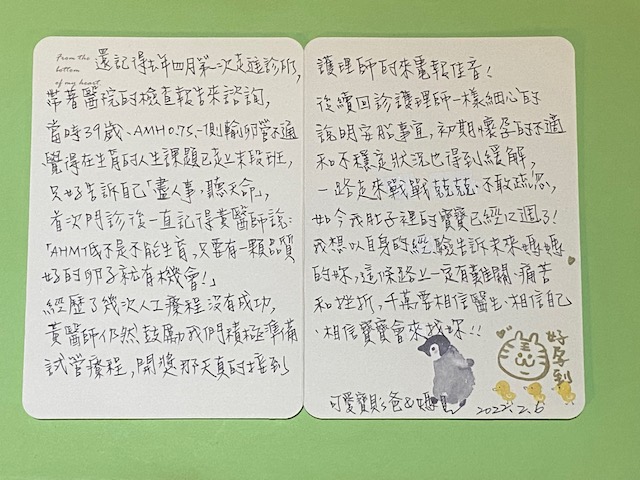 From the
bottom
of my heart
還記得去年四月第一次走進診所,
帶著醫院的檢查報告來諮詢,
當時39歲、AMH0.75、一側輸卵管不通
覺得在生育的人生課題已走上末段班,
只好告訴自己「盡人事,聽天命」,
首次門診後一直記得黃醫師說:
「AMH低不是不能生育,只要有一顆品質
好的卵子就有機會!」
經歷了幾次人工療程沒有成功,
黃醫師仍然鼓勵我們積極準備
試管療程,開獎那天真的接到
護理師的來電報佳音!
後續回診護理師一樣細心的
說明安胎事宜,初期懷孕的不適
和不穩定狀況也得到緩解,
一路走來戰戰兢兢不敢疏忽,
如今我肚子裡的寶寶已經12週了!
我想以自身的經驗告訴未來媽媽
的妳,這條路上一定有難關、痛苦
和挫折,千萬要相信醫生、相信自己
、相信寶寶會來找妳!!
好孕到
可愛寶貝爸&媽
2022.2.6